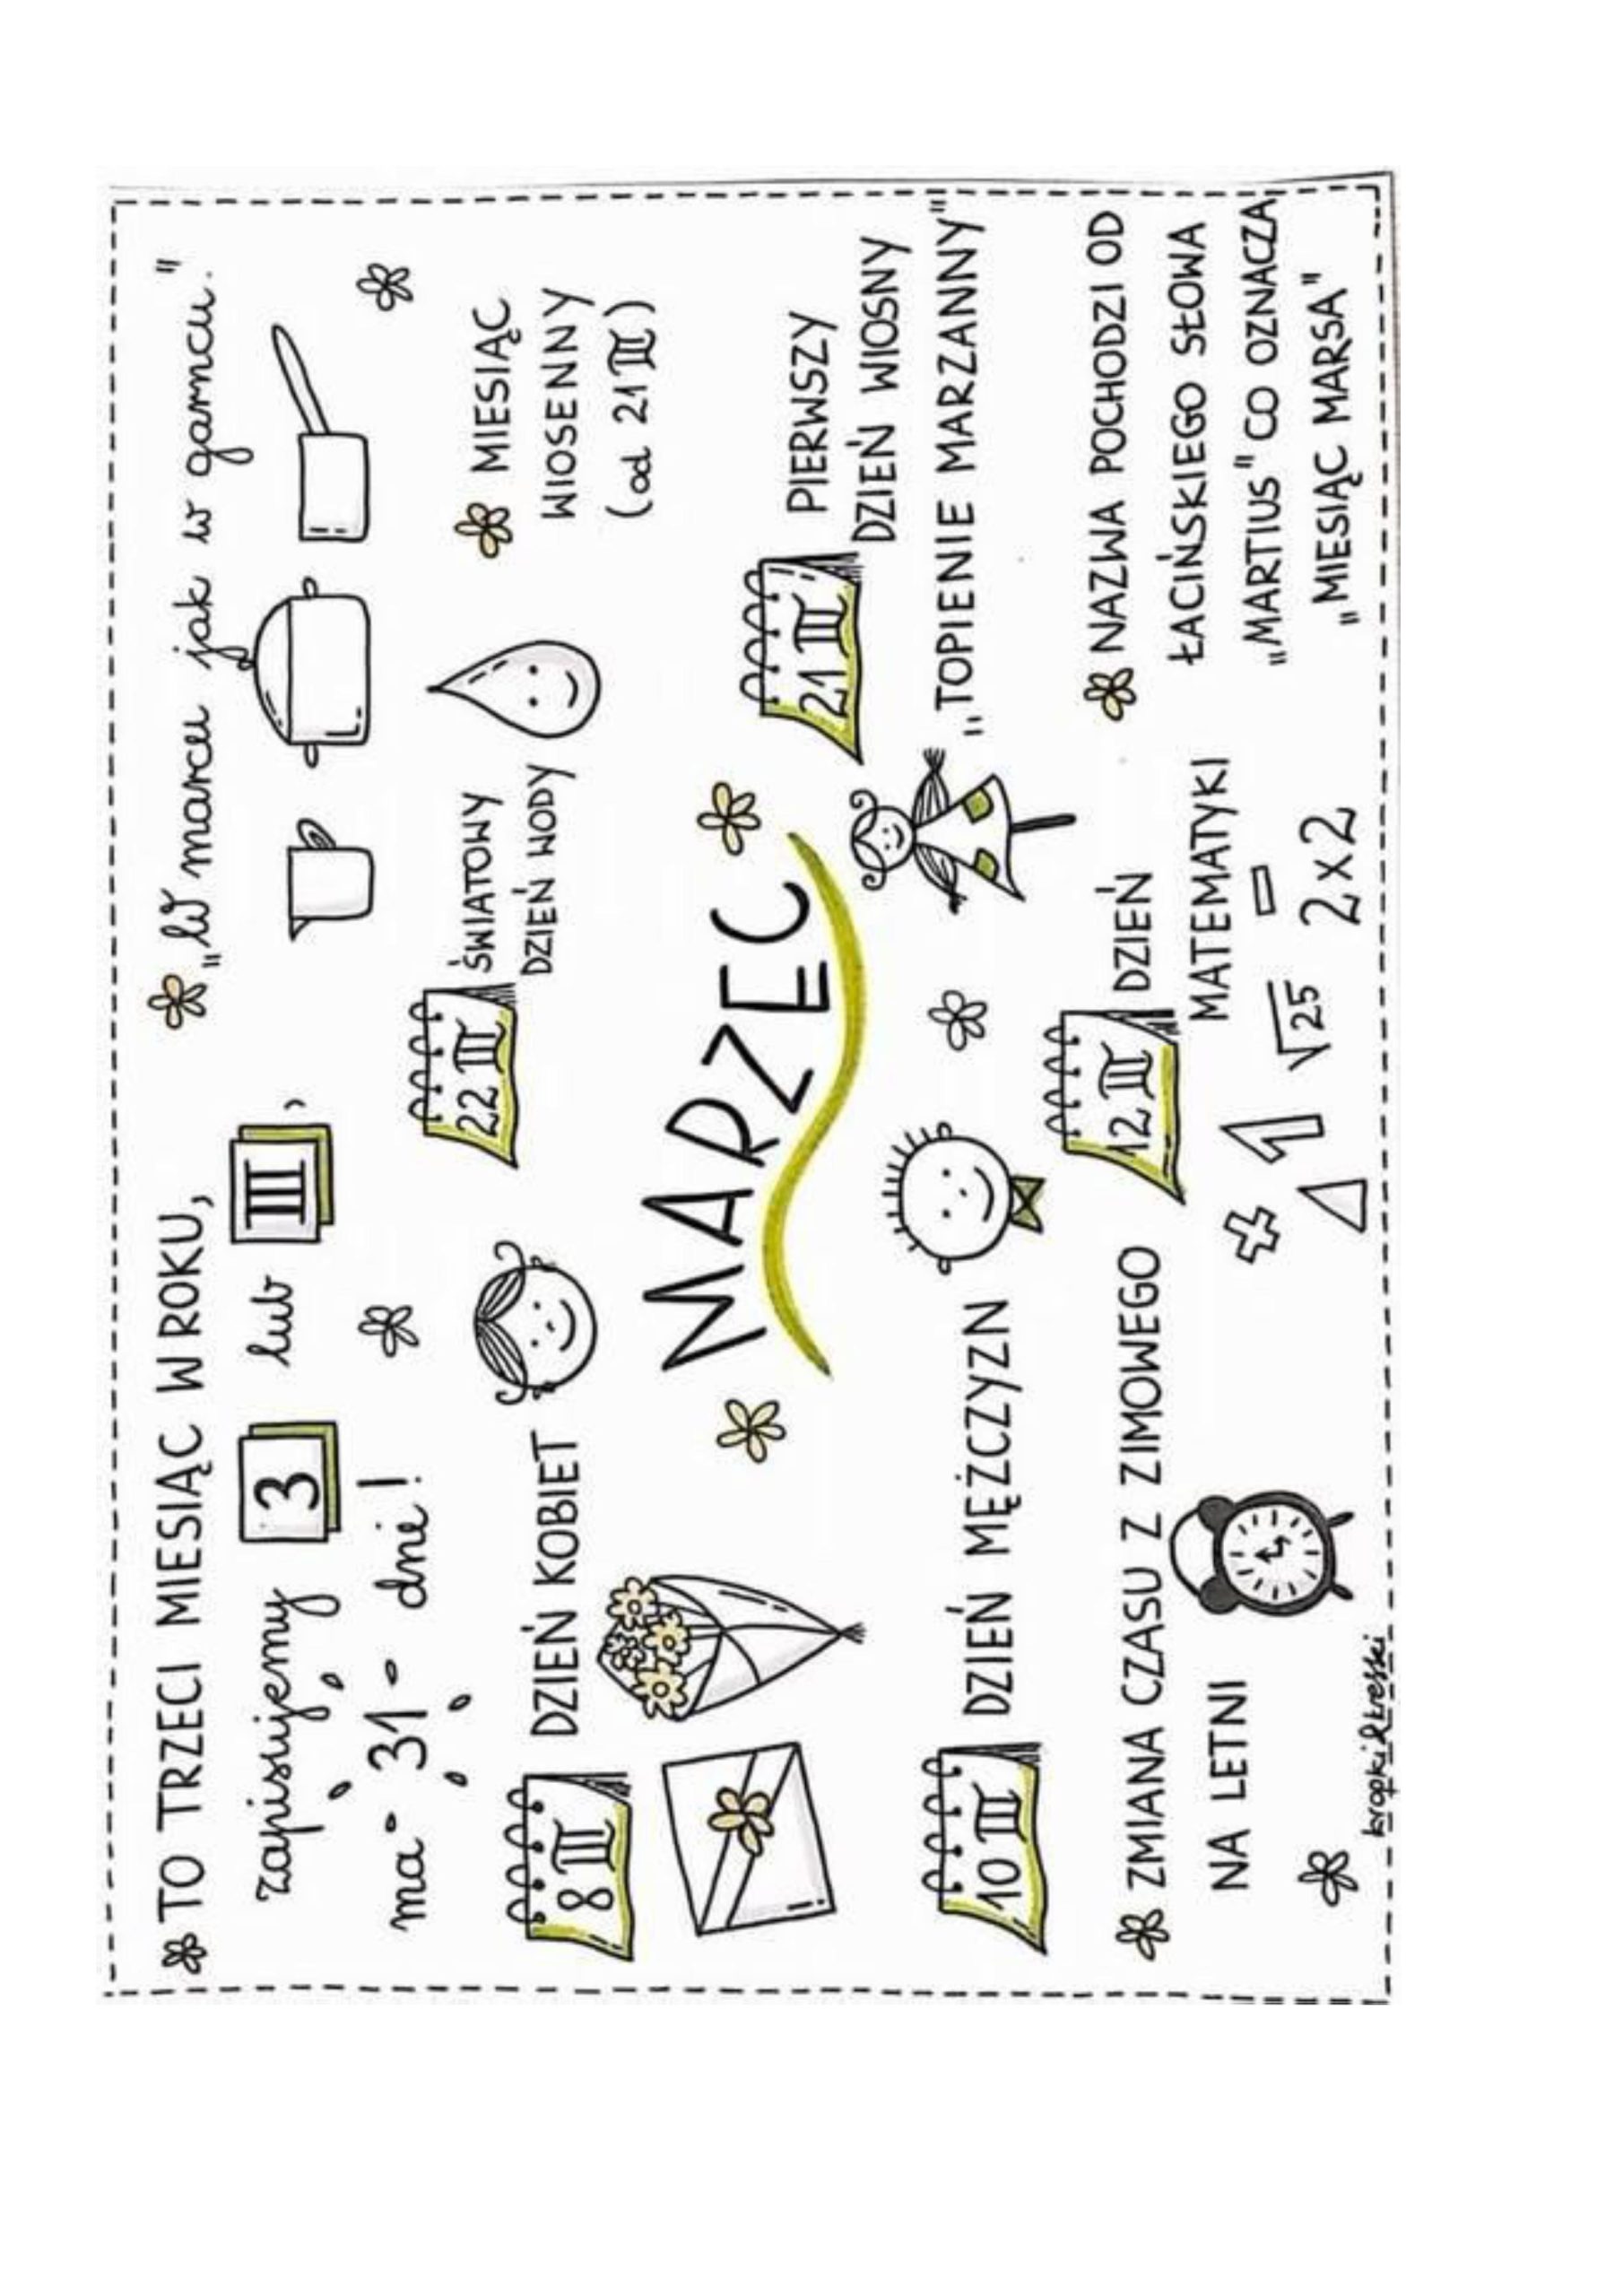 TO TRZECI MIESIĄC W ROKU,
zapisujemy 3 lub III,
ma 31 dni!
„W marcu jak w garncu."
8 III DZIEŃ KOBIET
22 III ŚWIATOWY
DZIEŃ WODY
MIESIĄC
WIOSENNY
(od 21 III)
MARZEC
21 III PIERWSZY
DZIEŃ WIOSNY
„TOPIENIE MARZANNY"
10 III DZIEŃ MĘŻCZYZN
12 III DZIEŃ
MATEMATYKI
+ 1 √25 –
2x2
ZMIANA CZASU Z ZIMOWEGO
NA LETNI
NAZWA POCHODZI OD
ŁACIŃSKIEGO SŁOWA
„MARTIUS" CO OZNACZA
„MIESIĄC MARSA"
kropki&kreski